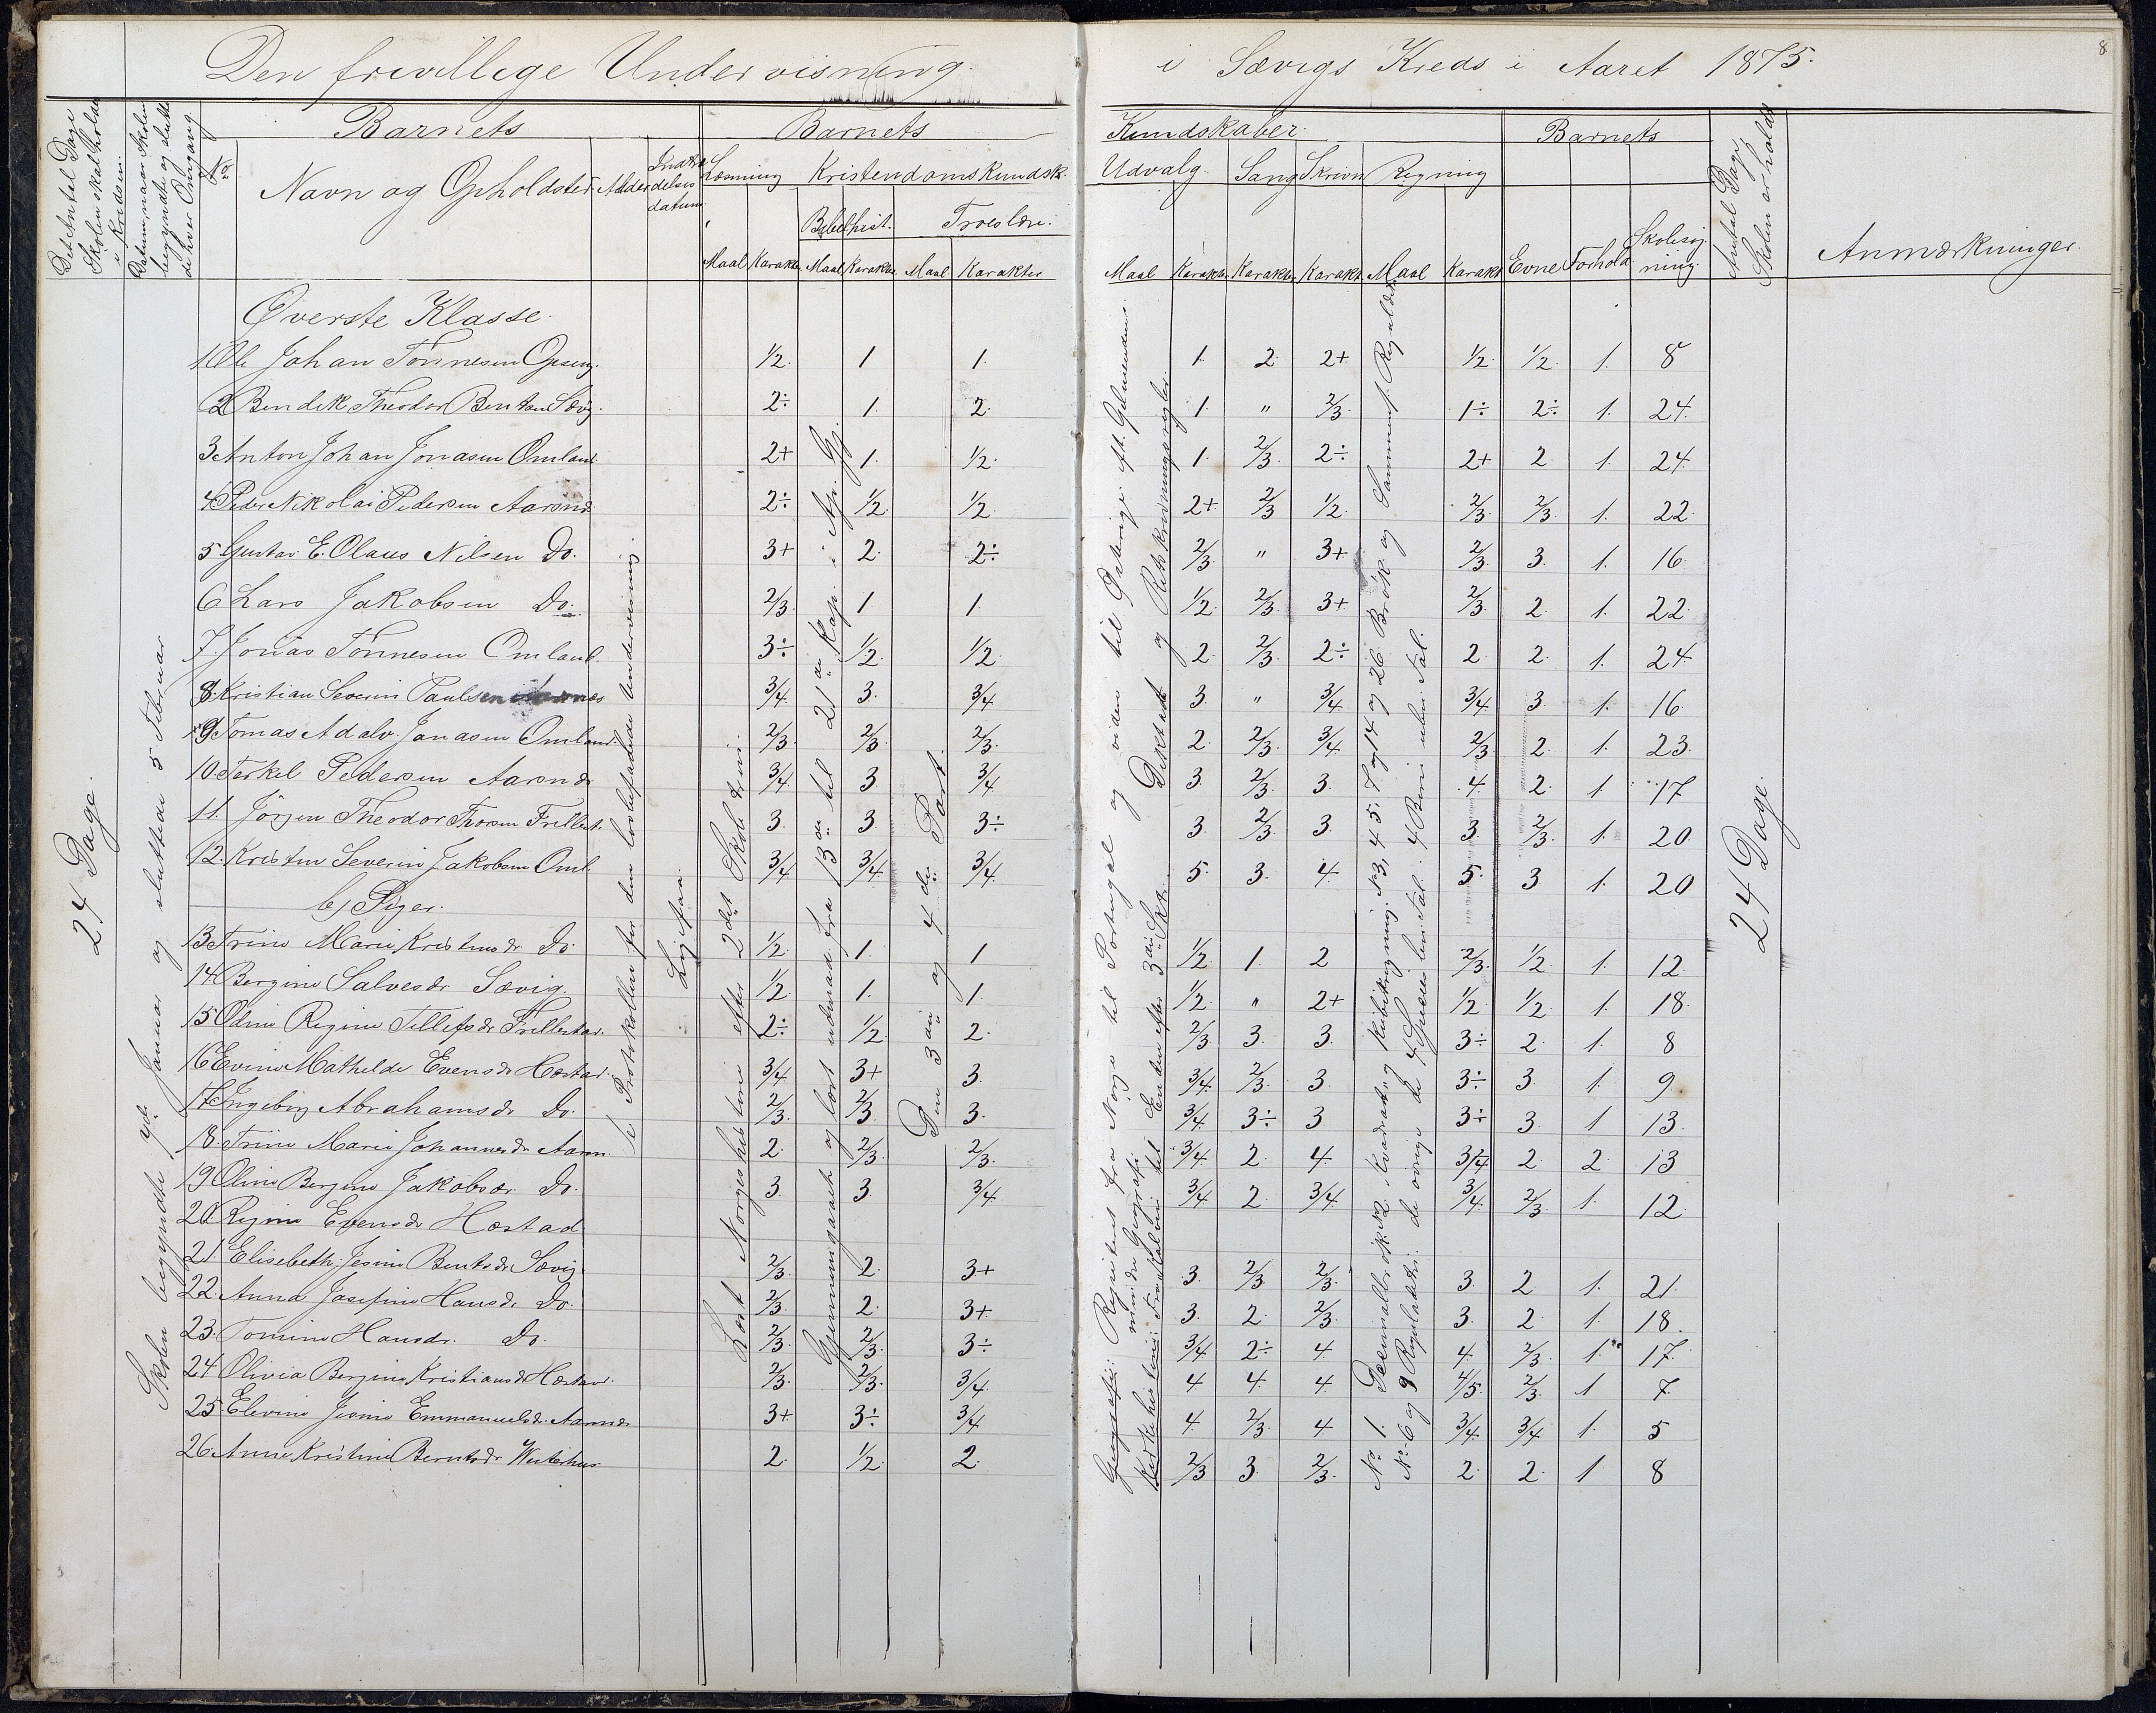 Den frivillige Undervisning
i Sævigs Kreds i Aaret 1875.
8
Det Antal Dage Skolen skal holdes i Kredsen.
Datum, naar Skolen begyndte og sluttede hver Omgang
No
Barnets
Navn og Opholdsted
Alder
Indtrædelses datum
Barnets
Kundskaber
Læsning
Kristendomskundsk.
Bibelhist.
Troeslære.
Maal Karakter Maal Karakter Maal Karakter
Udvalg Sang Skrivn Regning
Maal Karakter Karakter Karakt Maal Karakt
Barnets
Evne Forhold Skolesøgning
Antal Dage Skolen er holdt
Anmærkninger.
24 Dage.
Skolen begyndte 7de Januar og sluttede 5 Februar
se Protokollen for den lovbefalede Undervisning.
Ligesaa.
Læst Norgeshistorie efter 2det Skoletrin.
Gjennemgaaet og lært udenad fra 13de til 21de Kap. i Ap. Gj.
Den 3die og 4de Part.
24 Dage.
Øverste Klasse.
1. Ole Johan Tönnesen Opseng. 1/2. 1 1. 1. 2. 2+ 1/2. 1/2. 1. 8
2 Bendik Theodor Bentsen Sævig. 2÷ 1. 2. 1. " 2/3. 1÷ 2÷ 1. 24.
3. Anton Johan Jonasen Omland 2+ 1. 1/2. 1. 2/3. 2÷ 2+ 2. 1. 24.
4 Peder Nikolai Pedersen Aarsnd. 2÷ 1/2. 1/2. 2+ 2/3 1/2. 2/3. 2/3. 1. 22.
5. Gustav E. Olaus Nilsen Do. 3+ 2. 2÷ 2/3. " 3+ 2/3. 3. 1. 16.
6 Lars Jakobsen Do. 2/3. 1. 1. 1/2. 2/3. 3+ 2/3. 2. 1. 22.
7. Jonas Tönnesen Omland. 3÷ 1/2. 1/2. 2. 2/3. 2÷ 2. 2. 1. 24.
8. Kristian Severin Paulsen 3/4. 3. 3/4 3. " 3/4. 3/4. 3. 1. 16.
9 Tomas Adalv. Jonasen Omland. 2/3. 2/3. 2/3. 2. 2/3. 3/4. 2/3. 2. 1. 23.
10. Terkel Pedersen Aarsnd. 3/4. 3 3/4 3. 2/3. 3. 4. 2. 1. 17
11. Jörgen Theodor Thorsen Frillest. 3. 3 3÷ 3. 2/3. 3. 3. 2/3. 1. 20.
12. Kristen Severin Jakobsen Oml. 3/4 3/4. 3/4. 5. 3. 4. 5. 3 1. 20
b) Piger.
13 Trine Marie Kristensdr Do. 1/2. 1. 1 1/2 1. 2 2/3. 1/2. 1. 12.
14 Bergine Salvesdr Sævig. 1/2. 1. 1. 1/2. " 2+ 1/2. 1/2. 1. 18.
15 Odine Regine Tellefsdr Frillestad. 2÷ 1/2. 2. 2/3 3. 3. 3÷ 2. 1. 8
16 Evine Mathilde Evensdr Hæstad. 3/4 3+ 3. 3/4. 2/3. 3. 3÷ 3. 1. 9.
17 Ingebrg Abrahamsdr Do. 2/3. 2/3. 3. 3/4. 3÷ 3 3÷ 3. 1 13.
18. Trine Marie Johannesdr Aarsn. 2. 2/3. 2/3. 3/4 2. 4. 3/4 2. 2. 13
19 Oline Bergine Jakobsdr. Do. 3. 3. 3/4 3/4 2. 3/4. 3/4. 2/3. 1. 12.
20. Regine Evensdr Hæstad.
21. Elisebeth Jesine Bentsdr Sævig. 2/3. 2. 3+ 3. 2/3. 2/3. 3. 2 1. 21.
22. Anna Josefine Hansdr Do. 2/3. 2. 3+ 3. 2. 2/3. 3. 2. 1. 18.
23. Tomine Hansdr. Do. 2/3. 2/3. 3÷ 3/4 2÷ 4. 4. 2/3. 1. 17.
24 Olivia Bergine Kristiansdr Hæstad. 2/3. 2/3. 3/4. 4. 4. 4 4/5. 2/3. 1 7.
25. Elevine Jesine Emmanuelsdr. Aarsnd. 3+ 3÷ 3/4 4. 2/3. 4 3/4. 3/4. 1. 5
26. Anne Kristine Berntsdr Westehus 2. 1/2. 2. 2/3 3. 2/3. 2. 2. 1 8